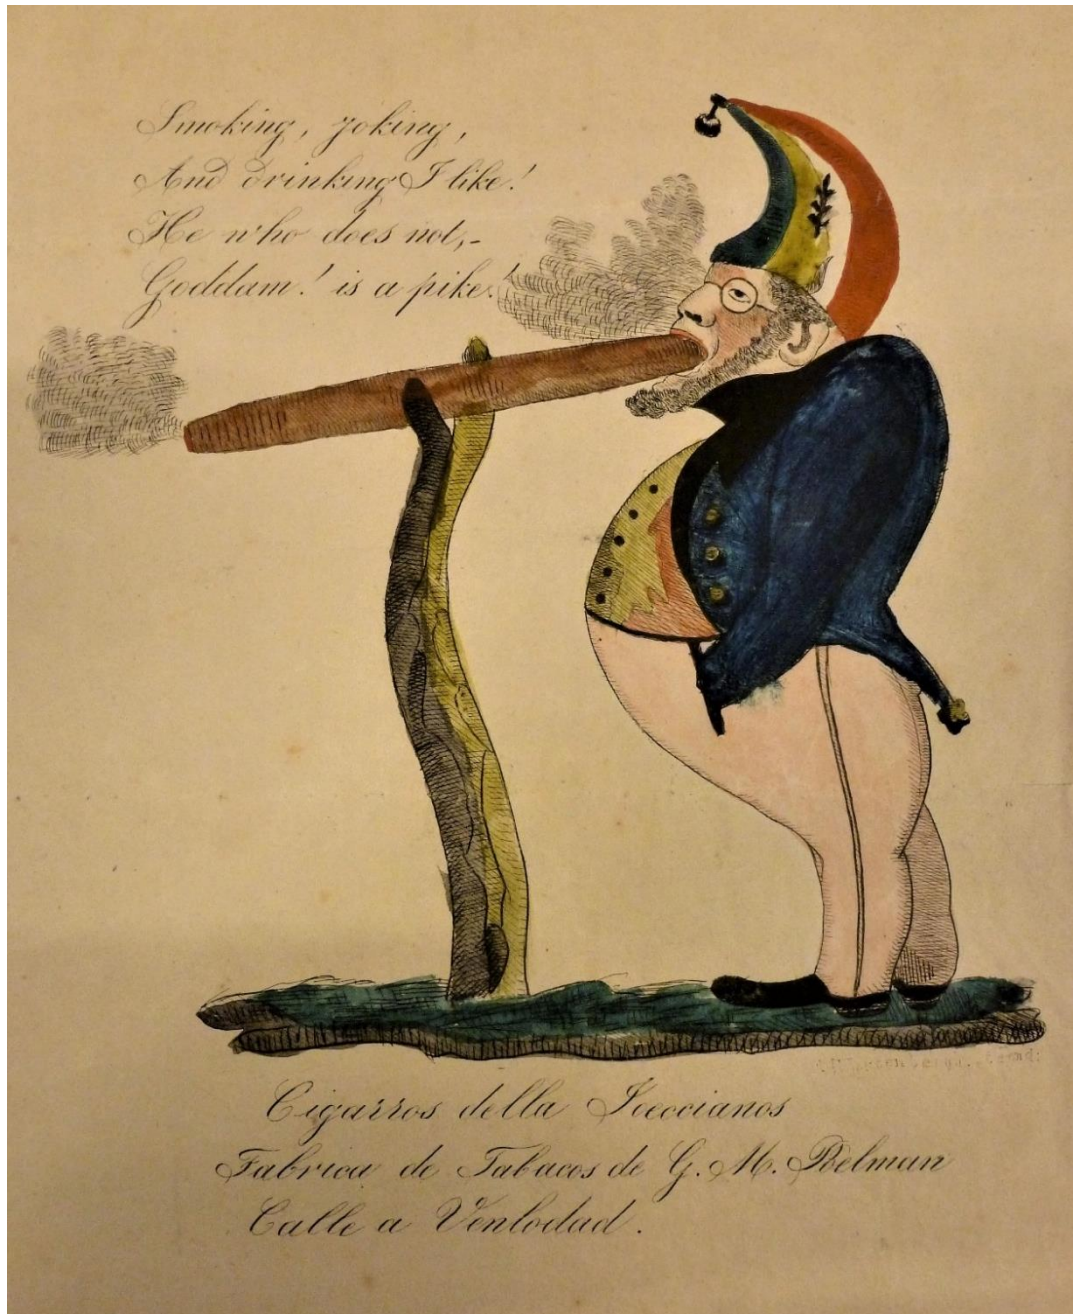 Smoking, joking,
And drinking I like!
He who does not,-
Goddam! is a pike!
Cigarros della Joccianos
Fabrica de Tabacos de G. M. Poelman
Calle a Venlodad.